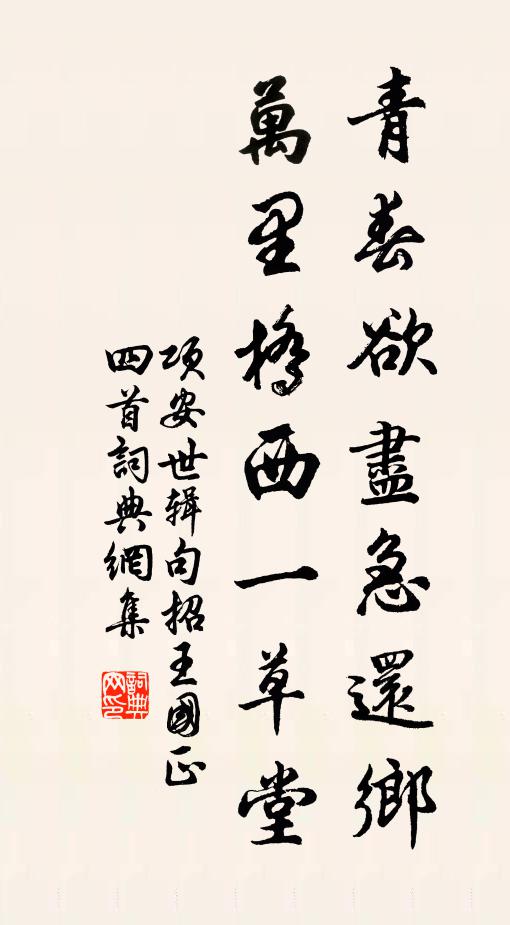 青春欲盡急還鄉
萬里橋西一草堂
項安世辑句招王國正
四首詞典網集
詞典网印